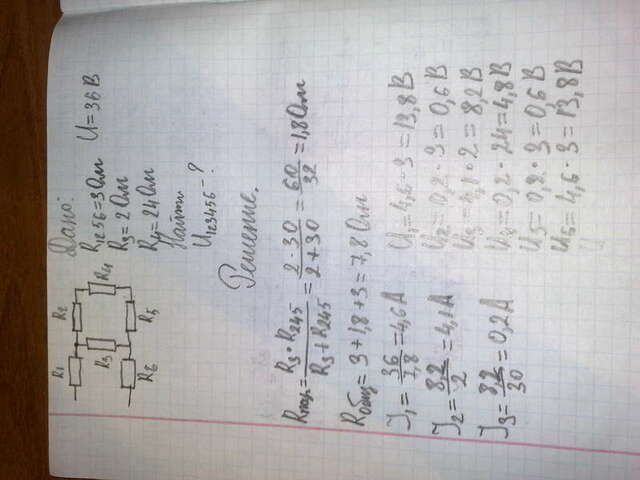 Дано:
R1256=3Ом U=36В
R3=2Ом
R4=24Ом
Найти
U123456-?
R1 R2
R3 R4
R6 R5
Решение.
Rпар= R3·R245 / R3+R245 = 2·30 / 2+30 = 60/32 =1,8Ом
Rобщ=3+1,8+3=7,8Ом
J1= 36/7,8 =4,6А
J2= 8,2/2 =4,1А
J3= 8,2/30 =0,2А
U1=4,6·3=13,8В
U2=0,2·3=0,6В
U3=4,1·2=8,2В
U4=0,2·24=4,8В
U5=0,2·3=0,6В
U6=4,6·3=13,8В